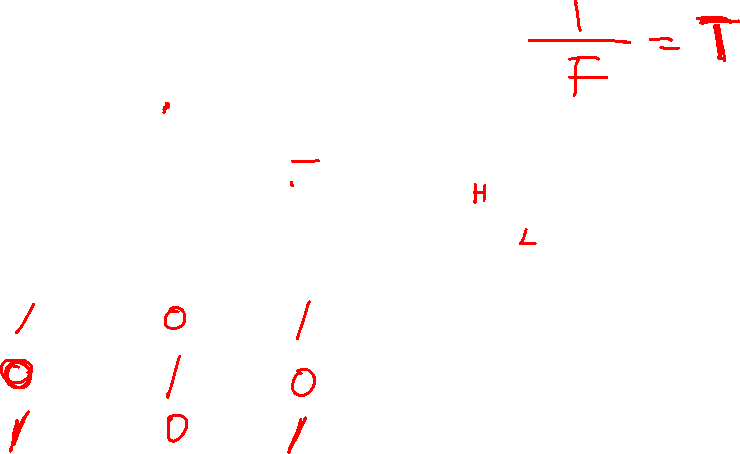 1/F = T
H
L
1 0 1
0 1 0
1 0 1